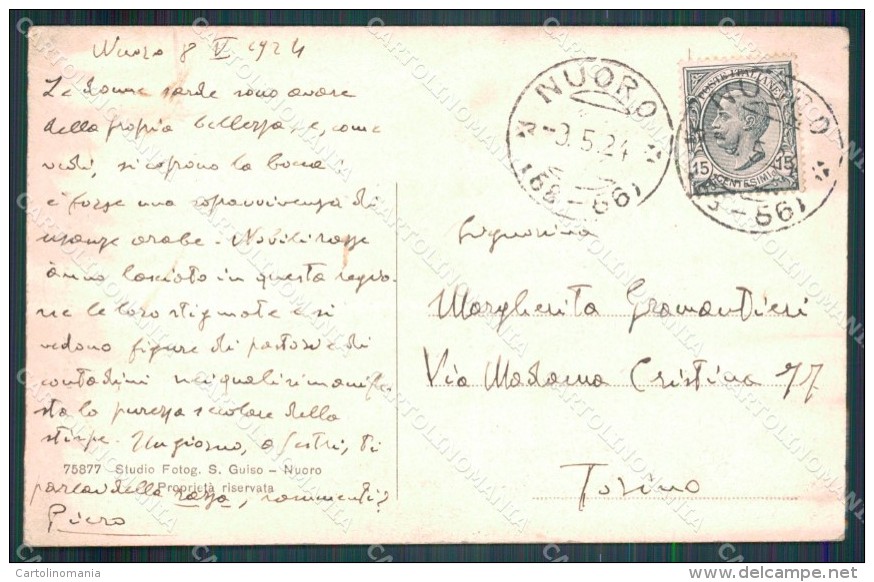 Nuoro 8 V 1924
Le donne sarde sono avare
della propria bellezza e, come
vedi, si coprono la bocca
è forse una sopravvivenza di
usanze arabe. Nobili razze
ànno lasciato in questa regio-
ne le loro stigmate e si
vedono figure di pastori e di
contadini nei quali si manife
sta la purezza secolare della
stirpe. Un giorno, a Sestri, ti
75877 - Studio Fotog. S. Guiso - Nuoro
Proprietà riservata
parlai della razza, rammenti?
Piero
NUORO
-8.5.24
(68-66)
POSTE ITALIANE
15 15
CENTESIMI
NUORO
(68-66)
Signorina
Margherita Gramantieri
Via Madama Cristina 77
Torino
CARTOLINOMANIA
Cartolinomania
www.delcampe.net